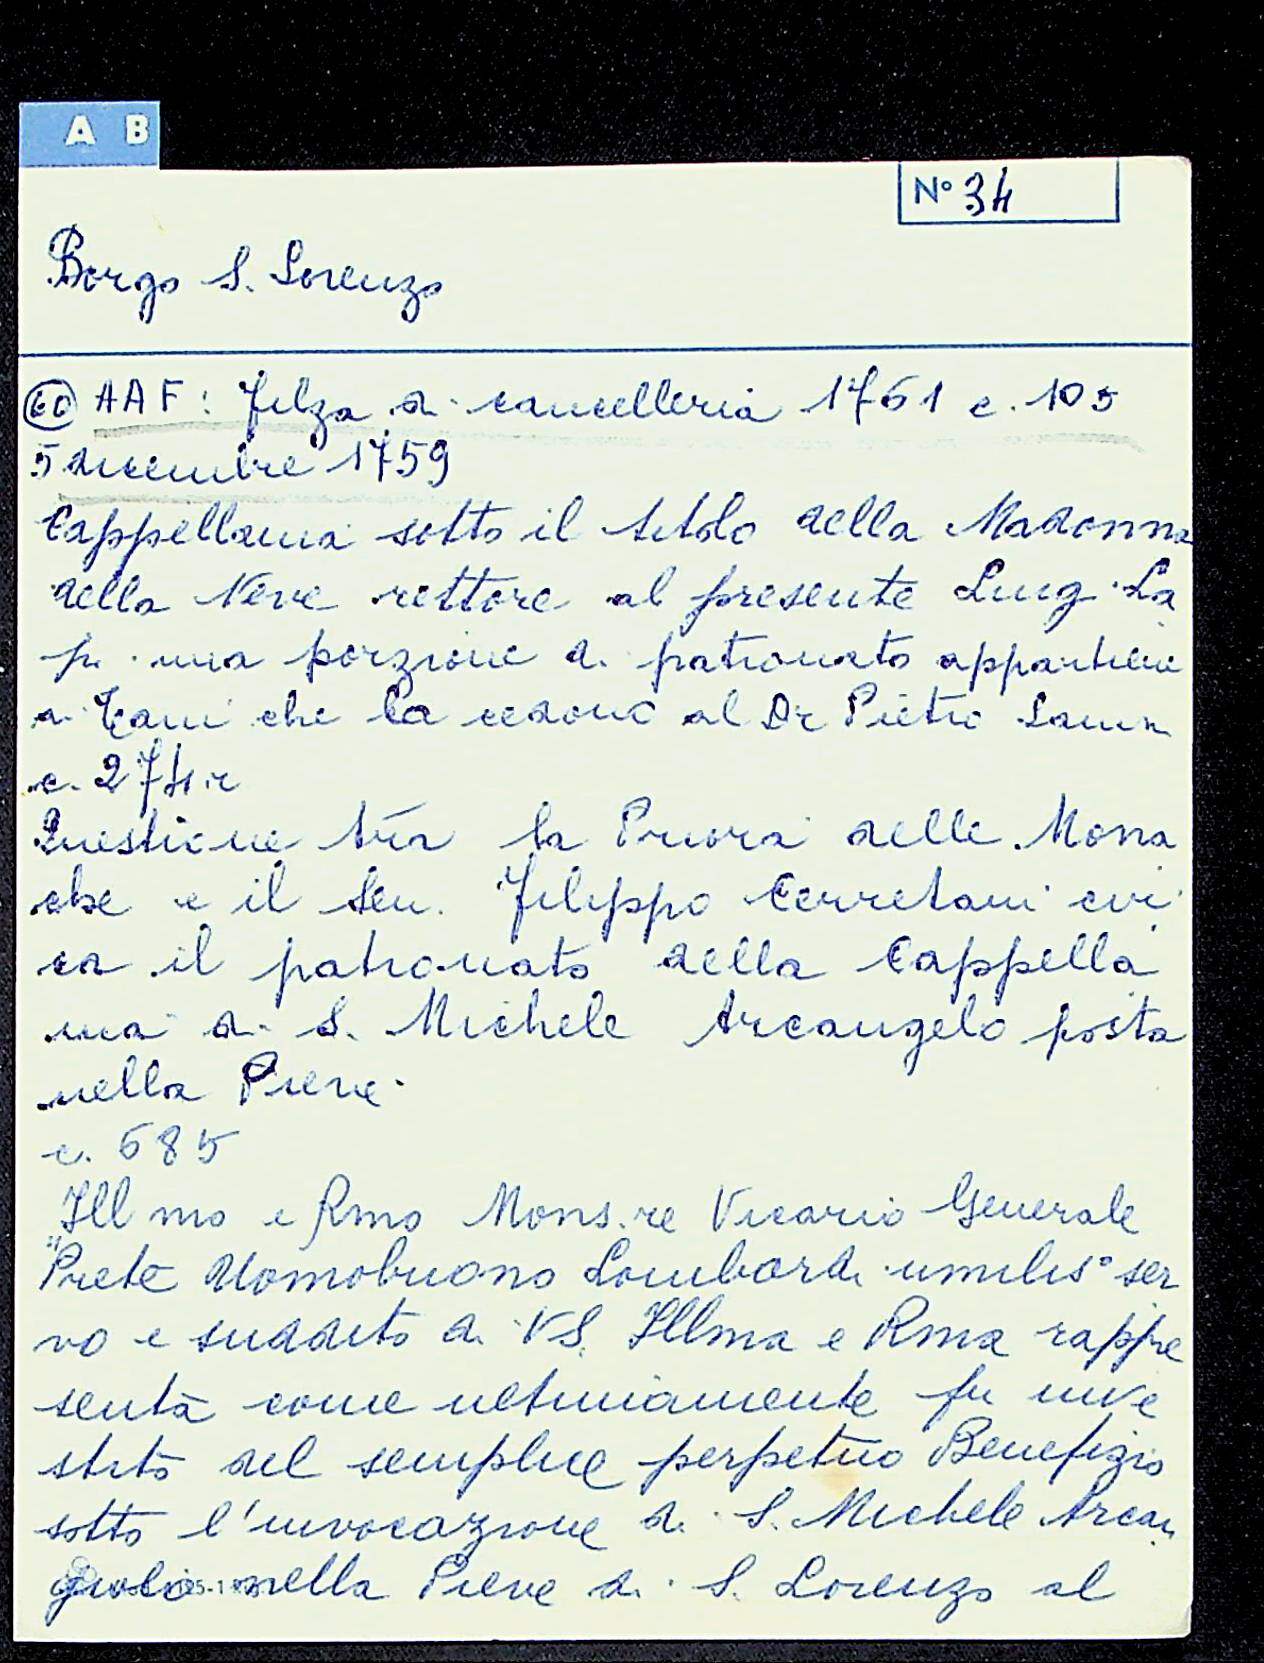 A B
N° 34
Borgo S. Lorenzo
60 AAF: Filza di cancelleria 1761 c. 105
5 dicembre 1759
Cappellania sotto il titolo della Madonna
della Neve rettore al presente Luig La
pi una porzione di patronato appartiene
a Tani che la cedono al Dr Pietro
c. 274r
Questione tra la Priora delle Mona
che e il Sen. Filippo Cerretani cir
ca il patronato della Cappella
nia di S. Michele Arcangelo posta
nella Pieve.
c. 685
Illmo e Rmo Mons.re Vicario Generale
"Prete Uomobuono Lombardi umilis° ser
vo e suddito di VS. Illma e Rma rappre
senta come ultimamente fu inve
stito del semplice perpetuo Benefizio
sotto l'invocazione di S. Michele Arcan
giolo nella Pieve di S. Lorenzo al